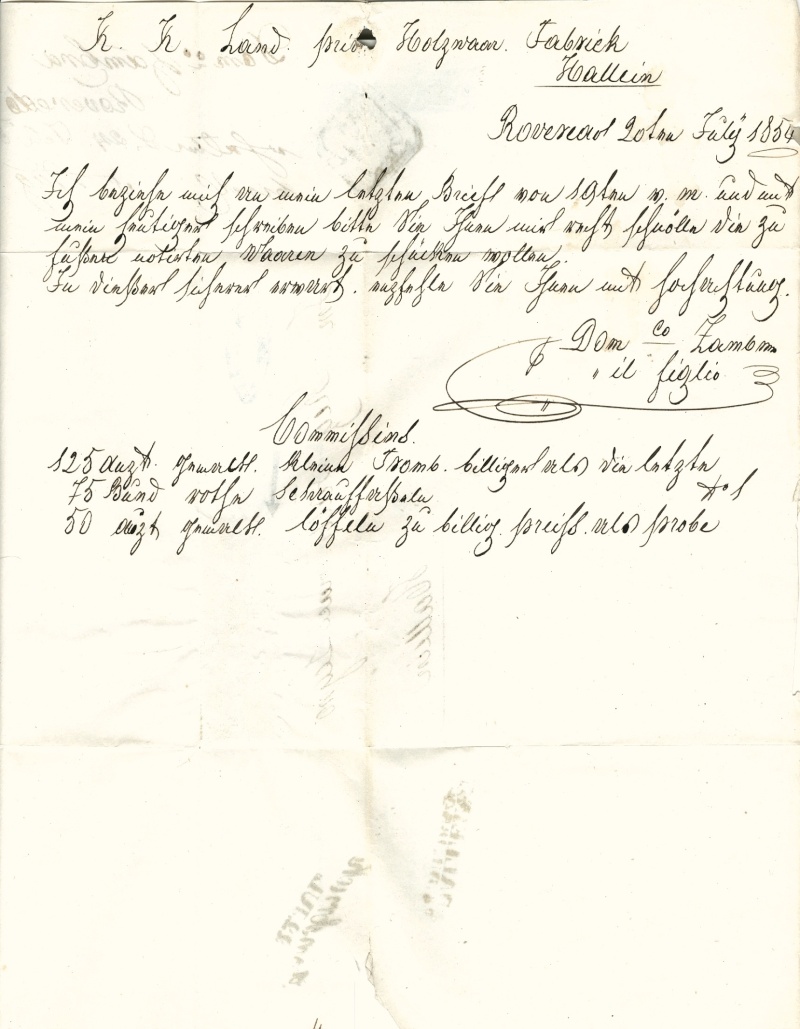 K. K. Land. priv. Holzwaar. Fabrick
Hallein
Rovered 20ten Julÿ 1854
Ich beziehe mich an mein letzten Briefe von 19ten v. m. und mit
mein heutiger schreiben bitte Sie Ihnen mir recht schnölle die zu
fußen notirten Waaren zu schücken wollen.
In dießer sicherer erwart. empfehle Sie Ihnen mit hochachtung.
Dom co Zambra
" il figlio
Commissins.
125 duzt. gemalt. kleine Tromb. billiger als die letzte
75 Bund rothe Schrauffaßeln
50 duzt gemalt. löffeln zu billig. preiß. als probe